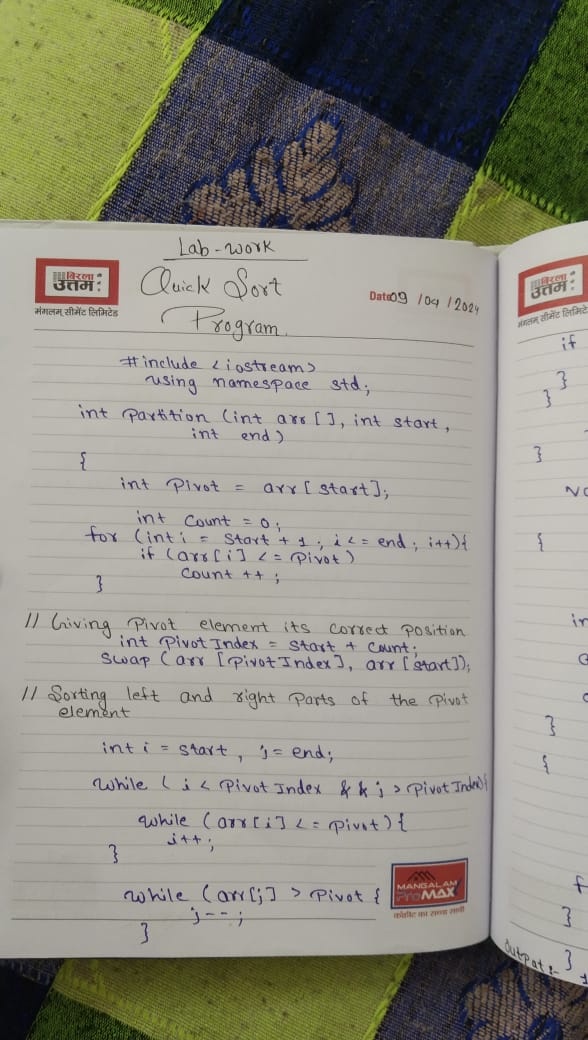 Lab-work
बिरला
उत्तम
मंगलम् सीमेंट लिमिटेड
Quick Sort
Program.
Date 09 / 04 / 2024
#include <iostream>
using namespace std;
int Partition (int arr [], int start,
int end)
{
int Pivot = arr [start];
int Count = 0;
for (int i = Start + 1; i <= end; i++){
if (arr[i] <= Pivot)
Count ++ ;
}
// Giving Pivot element its correct Position
int PivotIndex = start + Count;
Swap (arr [PivotIndex], arr [start]);
// Sorting left and right Parts of the Pivot
element
int i = start , j = end;
while ( i < PivotIndex && j > PivotIndex){
while (arr[i] <= Pivot){
i++;
}
while (arr[j] > Pivot {
j--;
}
MANGALAM
ProMAX
बिरला
उत्तम
if
}
}
}
{
}
{
}
Output:-
}